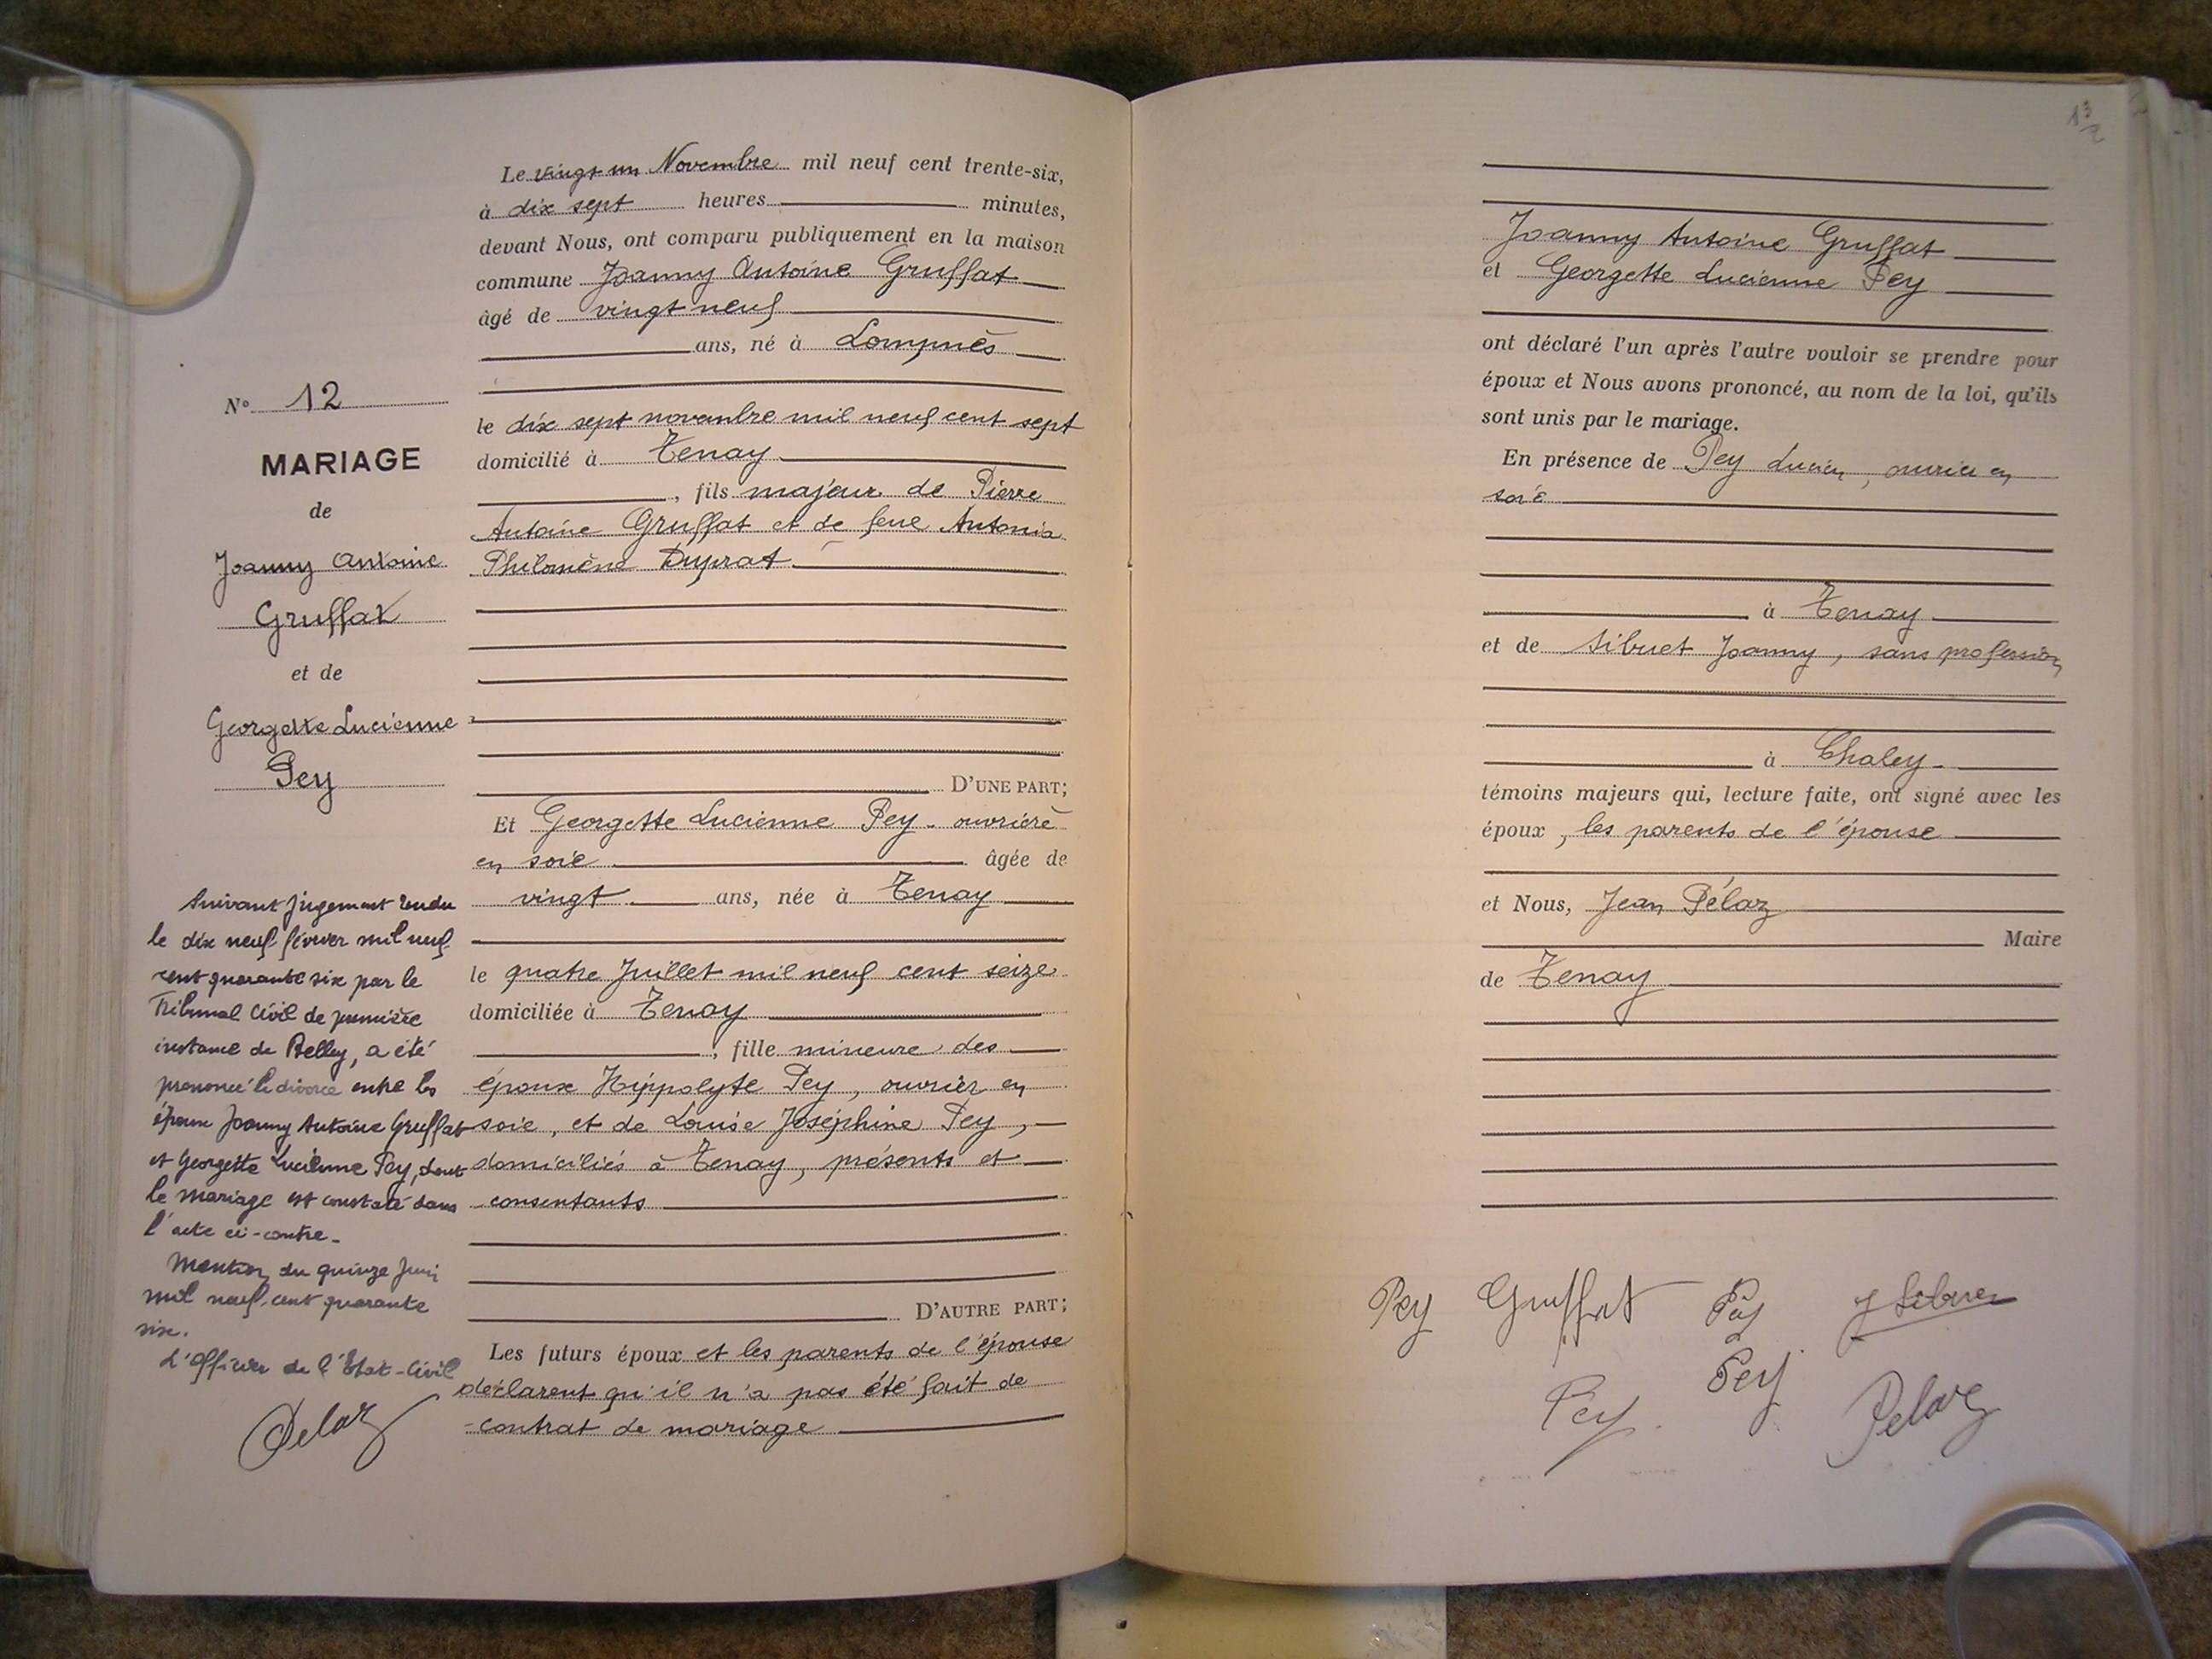 N° 12
MARIAGE
de
Joanny Antoine
Gruffat
et de
Georgette Lucienne
Pey
Suivant jugement rendu
le dix neuf février mil neuf
cent quarante six par le
Tribunal Civil de première
instance de Belley, a été
prononcé le divorce entre les
époux Joanny Antoine Gruffat
et Georgette Lucienne Pey, dont
le mariage est constaté dans
l'acte ci-contre.
Mention du quinze Juin
mil neuf cent quarante
six.
L'Officier de l'Etat-Civil
Pelaz
Le vingt un Novembre mil neuf cent trente-six,
à dix sept heures minutes,
devant Nous, ont comparu publiquement en la maison
commune Joanny Antoine Gruffat
âgé de vingt neuf
ans, né à Lompnès
le dix sept novembre mil neuf cent sept
domicilié à Tenay
, fils majeur de Pierre
Antoine Gruffat et de feue Antonia
Philomène Duprat
D'UNE PART;
Et Georgette Lucienne Pey - ouvrière
en soie âgée de
vingt ans, née à Tenay
le quatre Juillet mil neuf cent seize
domiciliée à Tenay
, fille mineure des
époux Hippolyte Pey, ouvrier en
soie, et de Louise Joséphine Pey,
domiciliés à Tenay, présents et
consentants
D'AUTRE PART;
Les futurs époux et les parents de l'épouse
déclarent qu'il n'a pas été fait de
contrat de mariage
13
2
Joanny Antoine Gruffat
et Georgette Lucienne Pey
ont déclaré l'un après l'autre vouloir se prendre pour
époux et Nous avons prononcé, au nom de la loi, qu'ils
sont unis par le mariage.
En présence de Pey Lucien, ouvrier en
soie
à Tenay
et de Sibuet Joanny, sans profession
à Chaley
témoins majeurs qui, lecture faite, ont signé avec les
époux, les parents de l'épouse
et Nous, Jean Pélaz
Maire
de Tenay
Pey Gruffat Pey J Sibuet
Pey Pey Pelaz